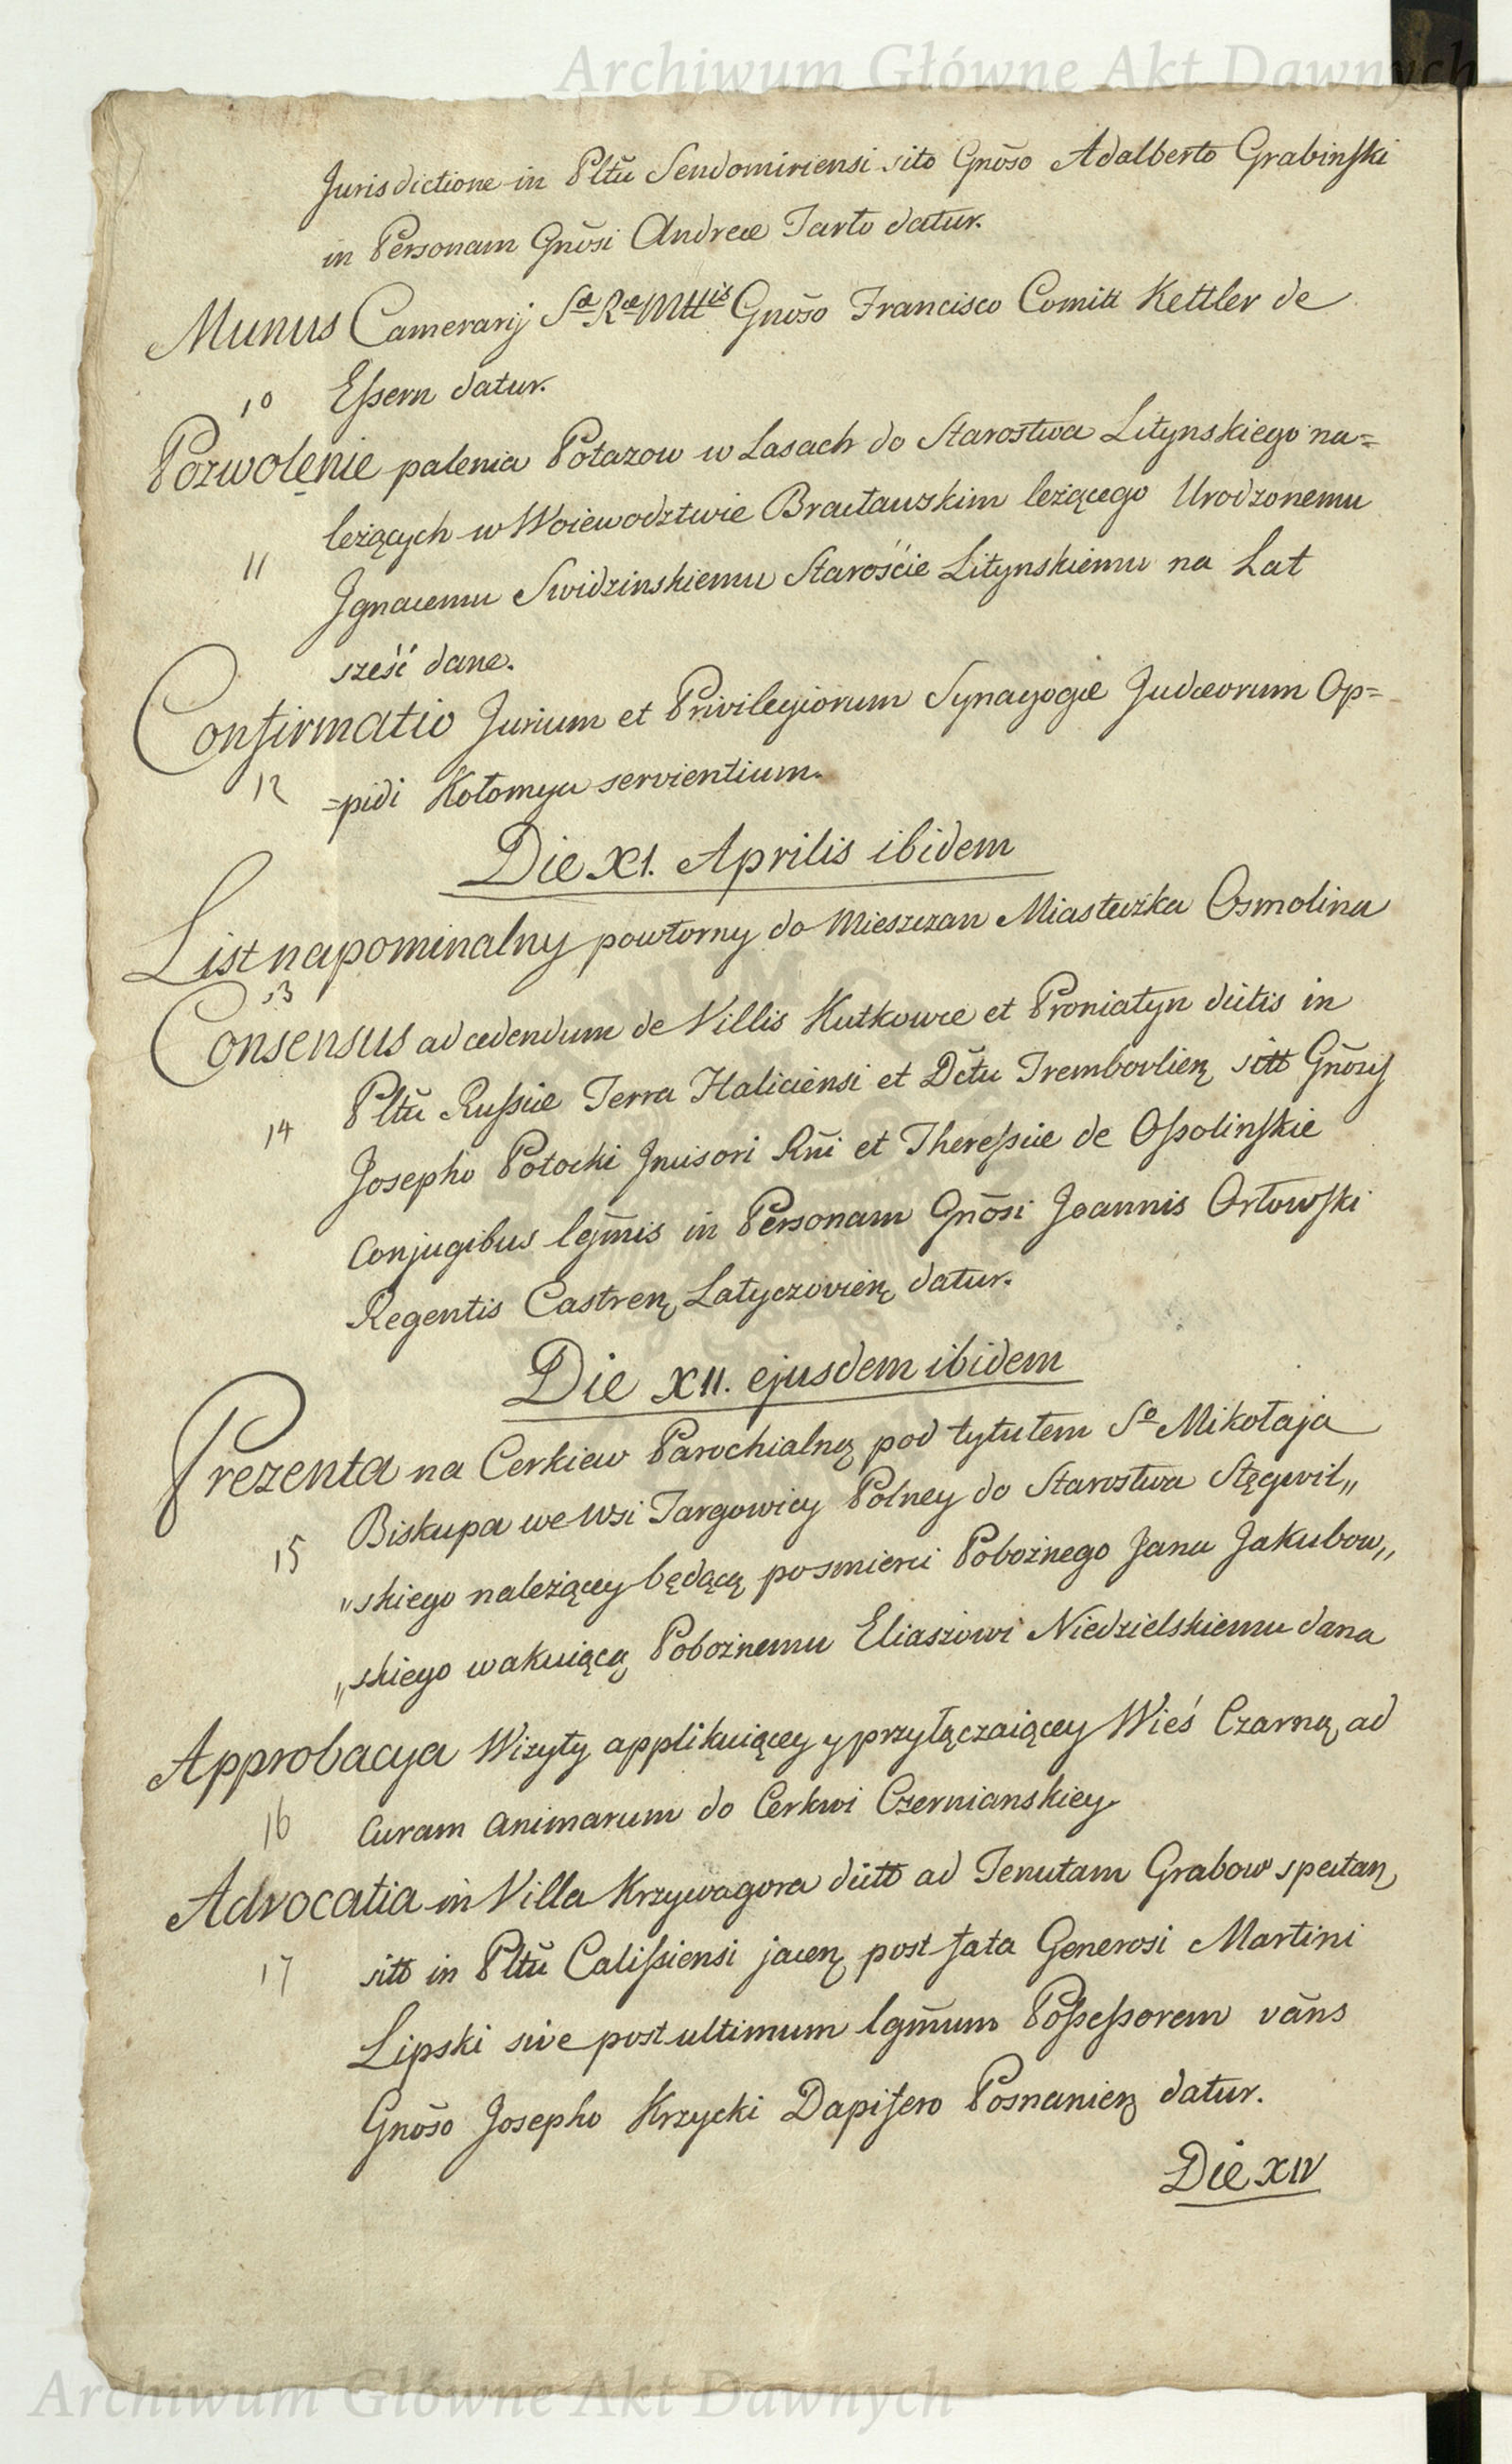 Archiwum Główne Akt Dawnych
Jurisdictione in Pltũ Sendomiriensi sito Gnõso Adalberto Grabinski
in Personam Gnõsi Andreæ Tarło datur.
Munus Camerarij Sæ Ræ Mttis Gnõso Francisco Comiti Kettler de
10 Essern datur.
Pozwolenie palenia Potazow w Lasach do Starostwa Lityńskiego na=
leżących w Woiewodztwie Bracławskim leżącego Urodzonemu
11 Jgnacemu Swidzinskiemu Starośćie Litynskiemu na Lat
sześć dane.
Confirmatio Jurium et Privilegiorum Synagogæ Judæorum Op=
12 =pidi Kołomyia servientium.
Die XI. Aprilis ibidem
List napominalny powtorny do Mieszczan Miasteczka Osmolina
13
Consensus ad cedendum de Villis Kutkowce et Proniatyn dictis in
14 Pltũ Russiæ Terra Haliciensi et Dctu Trembovlien sitt Gnõsis
Josepho Potocki Jncisori Rñi et Theressiæ de Ossolinskie
Conjugibus lgm̃is in Personam Gnõsi Joannis Orłowski
Regentis Castren Latyczovien datur.
Die XII. ejusdem ibidem
Prezenta na Cerkiew Parochialną pod tytułem So Mikołaja
Biskupa we Wsi Targowicy Polney do Starostwa Stęgwil„
15 „skiego należącey będącą po smierci Pobożnego Jana Jakubow„
„skiego wakuiącą Pobożnemu Eliaszowi Niedzielskiemu dana
Approbacya Wizyty applikuiącey y przyłączaiącey Wieś Czarną ad
16 Curam animarum do Cerkwi Czernianskiey
Advocatia in Villa Krzywagora dictt ad Tenutam Grabow spectan
17 sitt in Pltũ Calissiensi jacen post fata Generosi Martini
Lipski sive post ultimum lgm̃um Possessorem vãns
Gnõso Josepho Krzycki Dapifero Posnanien datur.
Die XIV
Archiwum Główne Akt Dawnych